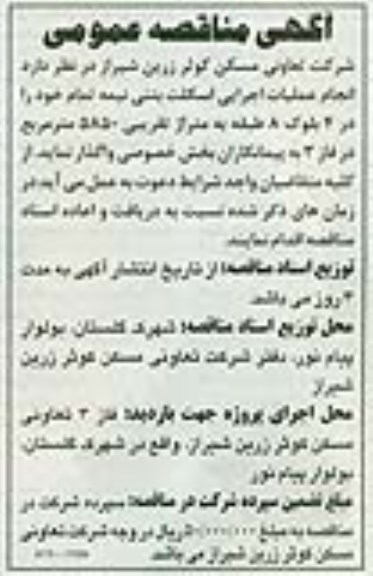 آگهی مناقصه عمومی
شرکت تعاونی مسکن کوثر زرین شیراز در نظر دارد
انجام عملیات اجرایی اسکلت بتنی نیمه تمام خود را
در ۴ بلوک ۸ طبقه به متراژ تقریبی ۵۸۵۰ مترمربع
در فاز ۳ به پیمانکاران بخش خصوصی واگذار نماید. از
کلیه متقاضیان واجد شرایط دعوت به عمل می آید در
زمان های ذکر شده نسبت به دریافت و اعاده اسناد
مناقصه اقدام نمایند.
توزیع اسناد مناقصه: از تاریخ انتشار آگهی به مدت
روز می باشد.
محل توزیع اسناد مناقصه: شهرک گلستان، بولوار
پیام نور، دفتر شرکت تعاونی مسکن کوثر زرین
شیراز
محل اجرای پروژه جهت بازدید: فاز ۳ تعاونی
مسکن کوثر زرین شیراز، واقع در شهرک گلستان،
بولوار پیام نور
مبلغ تضمین سپرده شرکت در مناقصه: سپرده شرکت در
مناقصه به مبلغ ریال در وجه شرکت تعاونی
مسکن کوثر زرین شیراز می باشد.